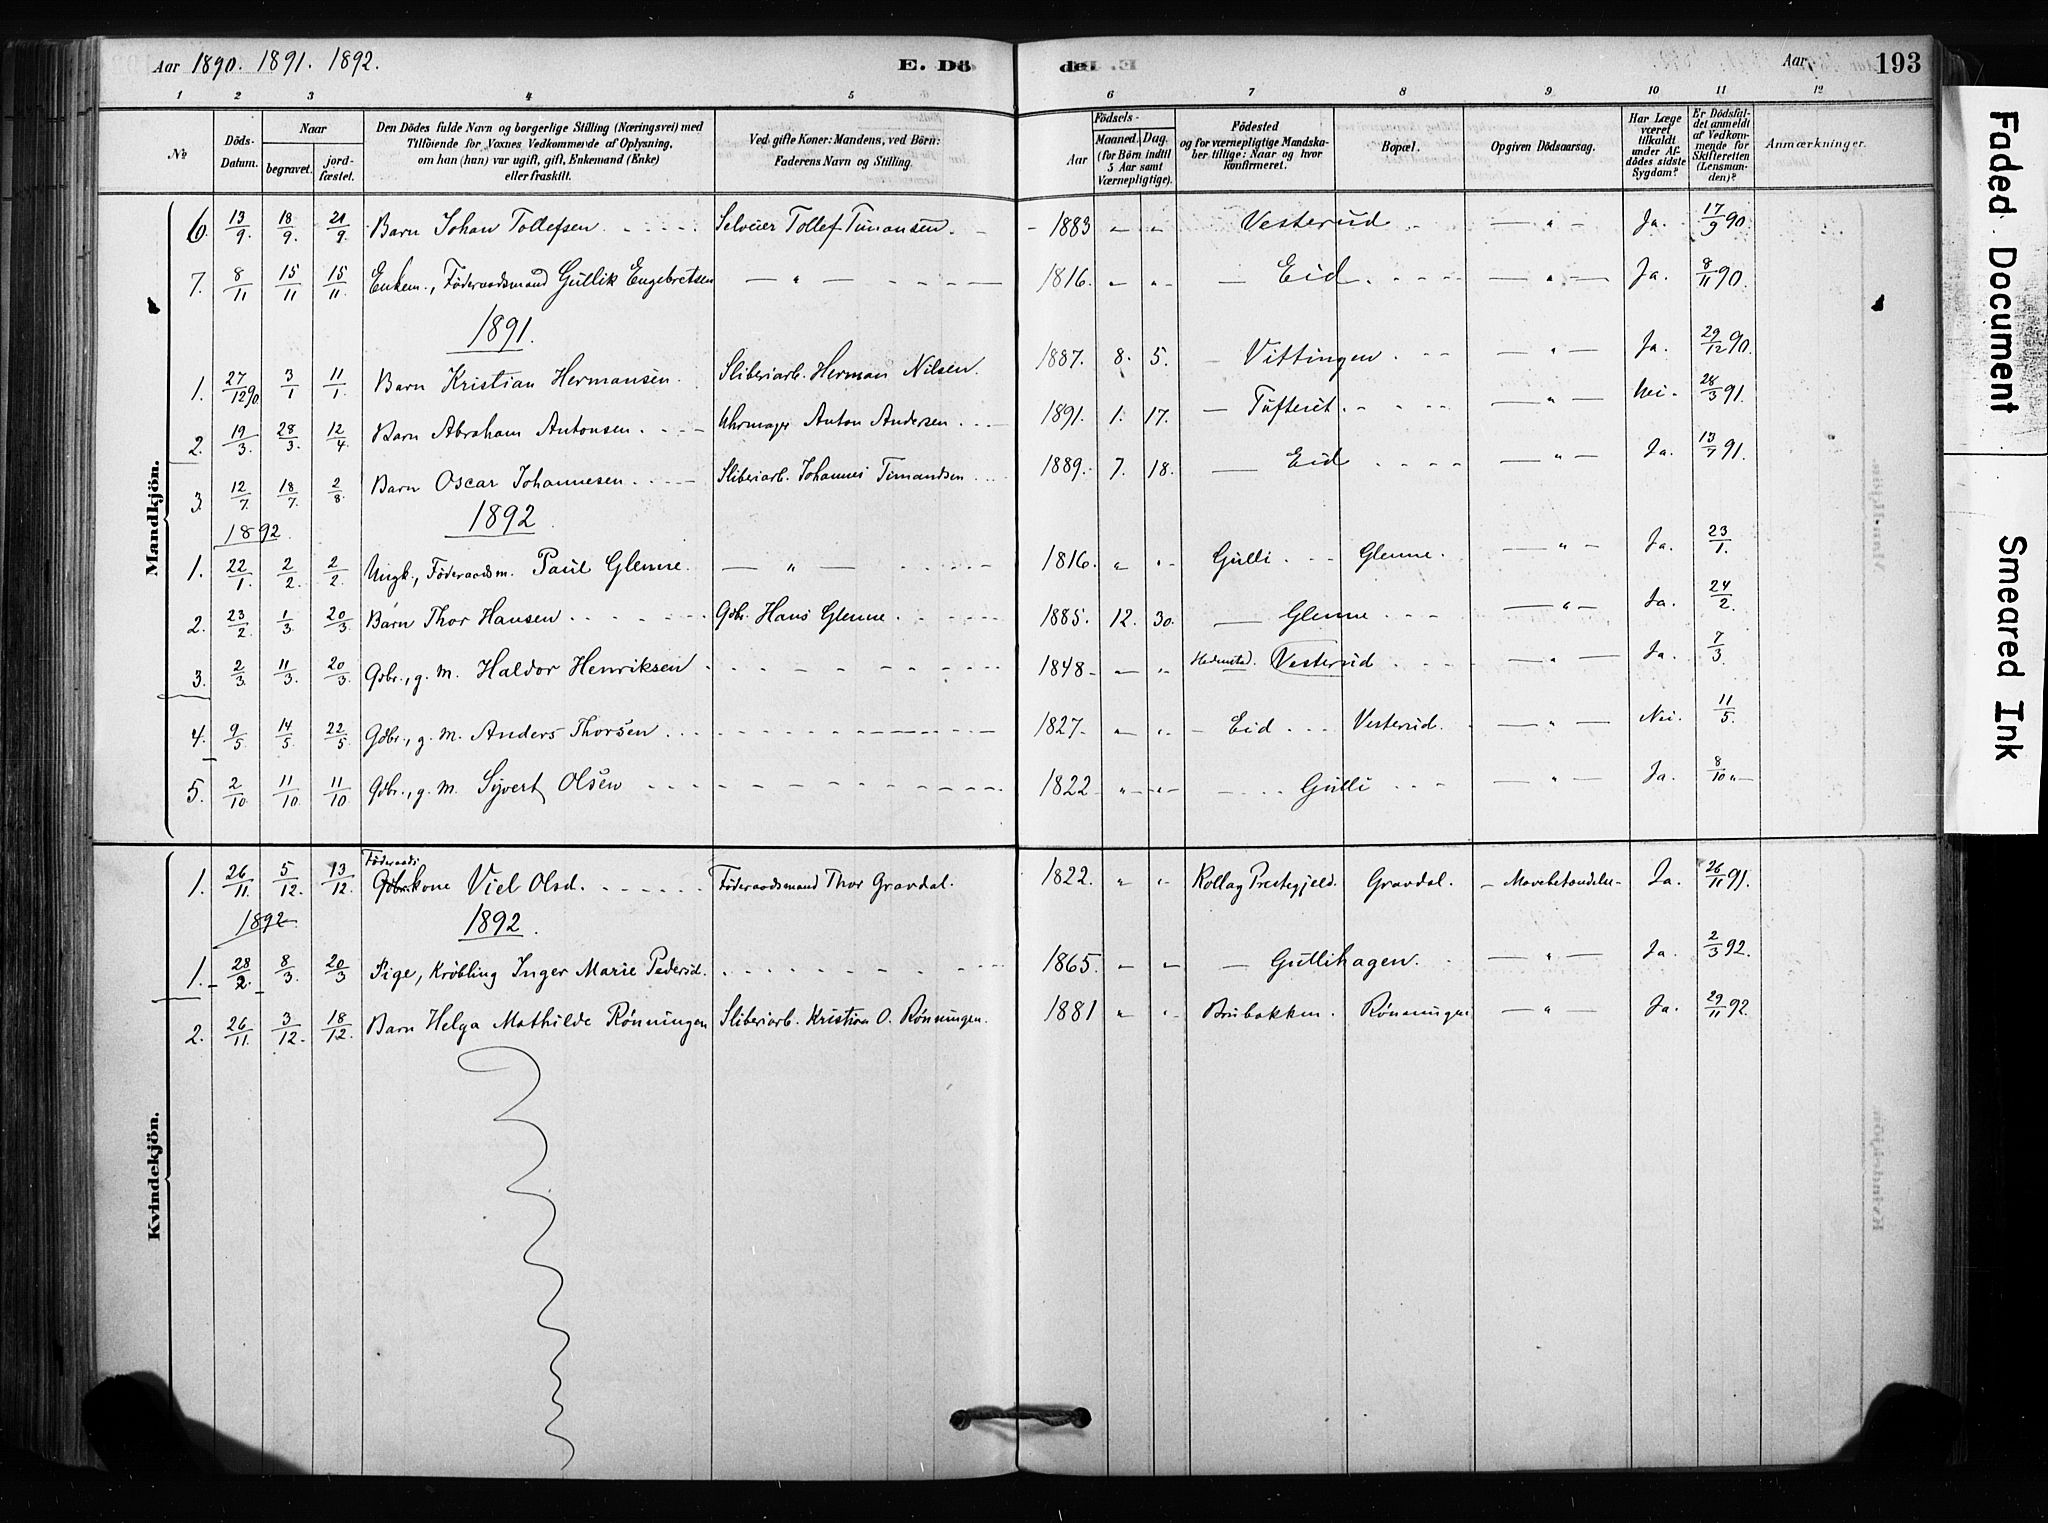 Aar 1890. 1891. 1892. E. Dö
del Aar 193
1 2 3 4 5 6 7 8 9 10 11 12
No Döds-Datum. Naar begravet. jord-fæstet. Den Dödes fulde Navn og borgerlige Stilling (Næringsvei) med Tilföiende for Voxnes Vedkommende af Oplysning, om han (hun) var ugift, gift, Enkemand (Enke) eller fraskilt. Ved gifte Koner: Mandens, ved Börn: Faderens Navn og Stilling. Födsels- Aar Maaned. Dag. (for Börn indtil 5 Aar samt Værnepligtige). Födested og for værnepligtige Mandska-ber tillige: Naar og hvor konfirmeret. Bopæl. Opgiven Dödsaarsag. Har Læge været tilkaldt under Af-dödes sidste Sygdom? Er Dödsfal-det anmeldt af Vedkom-mende for Skifteretten (Lensman-den)? Anmærkninger.
Mandkjön.
6. 13/9. 18/9. 21/9. Barn Johan Tollefsen. Selveier Tollef Timansen. 1883 " " Vesterud — " — Ja. 17/9 90.
7. 8/11 15/11 15/11. Enkem., Föderaadsmand Gullik Engebretsen — " — 1816. " " Eid. — " — Ja. 8/11 90.
1891.
1. 27/12 90. 3/1 11/1. Barn Kristian Hermansen. Sliberiarb. Herman Nilsen. 1887. 8. 5. Vittingen. — " — Ja. 29/12 90.
2. 19/3. 28/3. 12/4. Barn Abraham Antonsen. Uhrmager Anton Andersen. 1891. 1. 17. Tufterut. — " — Nei. 28/3 91.
3. 12/7. 18/7. 2/8. Barn Oscar Johannesen. Sliberiarb. Johannes Timandsen. 1889. 7. 18. Eid — " — Ja. 13/7 91.
1892 1892.
1. 22/1. 2/2. 2/2. Ungk., Föderaadsm. Paul Glenne. — " — 1816. " " Gulli. Glenne. — " — Ja. 23/1.
2. 23/2. 1/3. 20/3. Barn Thor Hansen. Gbr. Hans Glenne. 1885. 12. 30. Glenne. — " — Ja. 24/2.
3. 2/3. 11/3. 20/3. Gbr., g. m. Haldor Henriksen 1848 — " Hedenstad. Vesterud — " — Ja. 7/3.
4. 9/5. 14/5. 22/5. Gbr., g. m. Anders Thorsen 1827 " " Eid Vesterud. — " — Nei. 11/5.
5. 2/10. 11/10 11/10 Gbr., g. m. Syvert Olsen 1822 " " Gulli — " — Ja. 8/10 "
Kvindekjön.
1. 26/11. 5/12. 13/12. Föderaads Gbr.kone Viel Olsd. Föderaadsmand Thor Gravdal. 1822. " " Rollag Prestegjeld. Gravdal. Mavebetændelse Ja. 26/11 91.
1892 1892.
1. 28/2. 8/3. 20/3 Pige, Kröbling Inger Marie Pedersd. 1865. " " Gullihagen. — " — Ja. 2/3 92.
2. 26/11. 3/12. 18/12. Barn Helga Mathilde Rönningen Sliberiarb. Kristian O. Rönningen. 1881 " " Brubakken. Rönningen — " — Ja. 29/11 92.
Faded Document
Smeared Ink